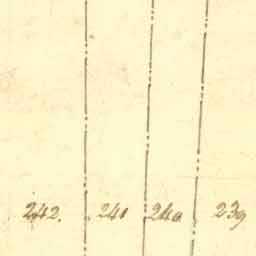 242. 241 240 239